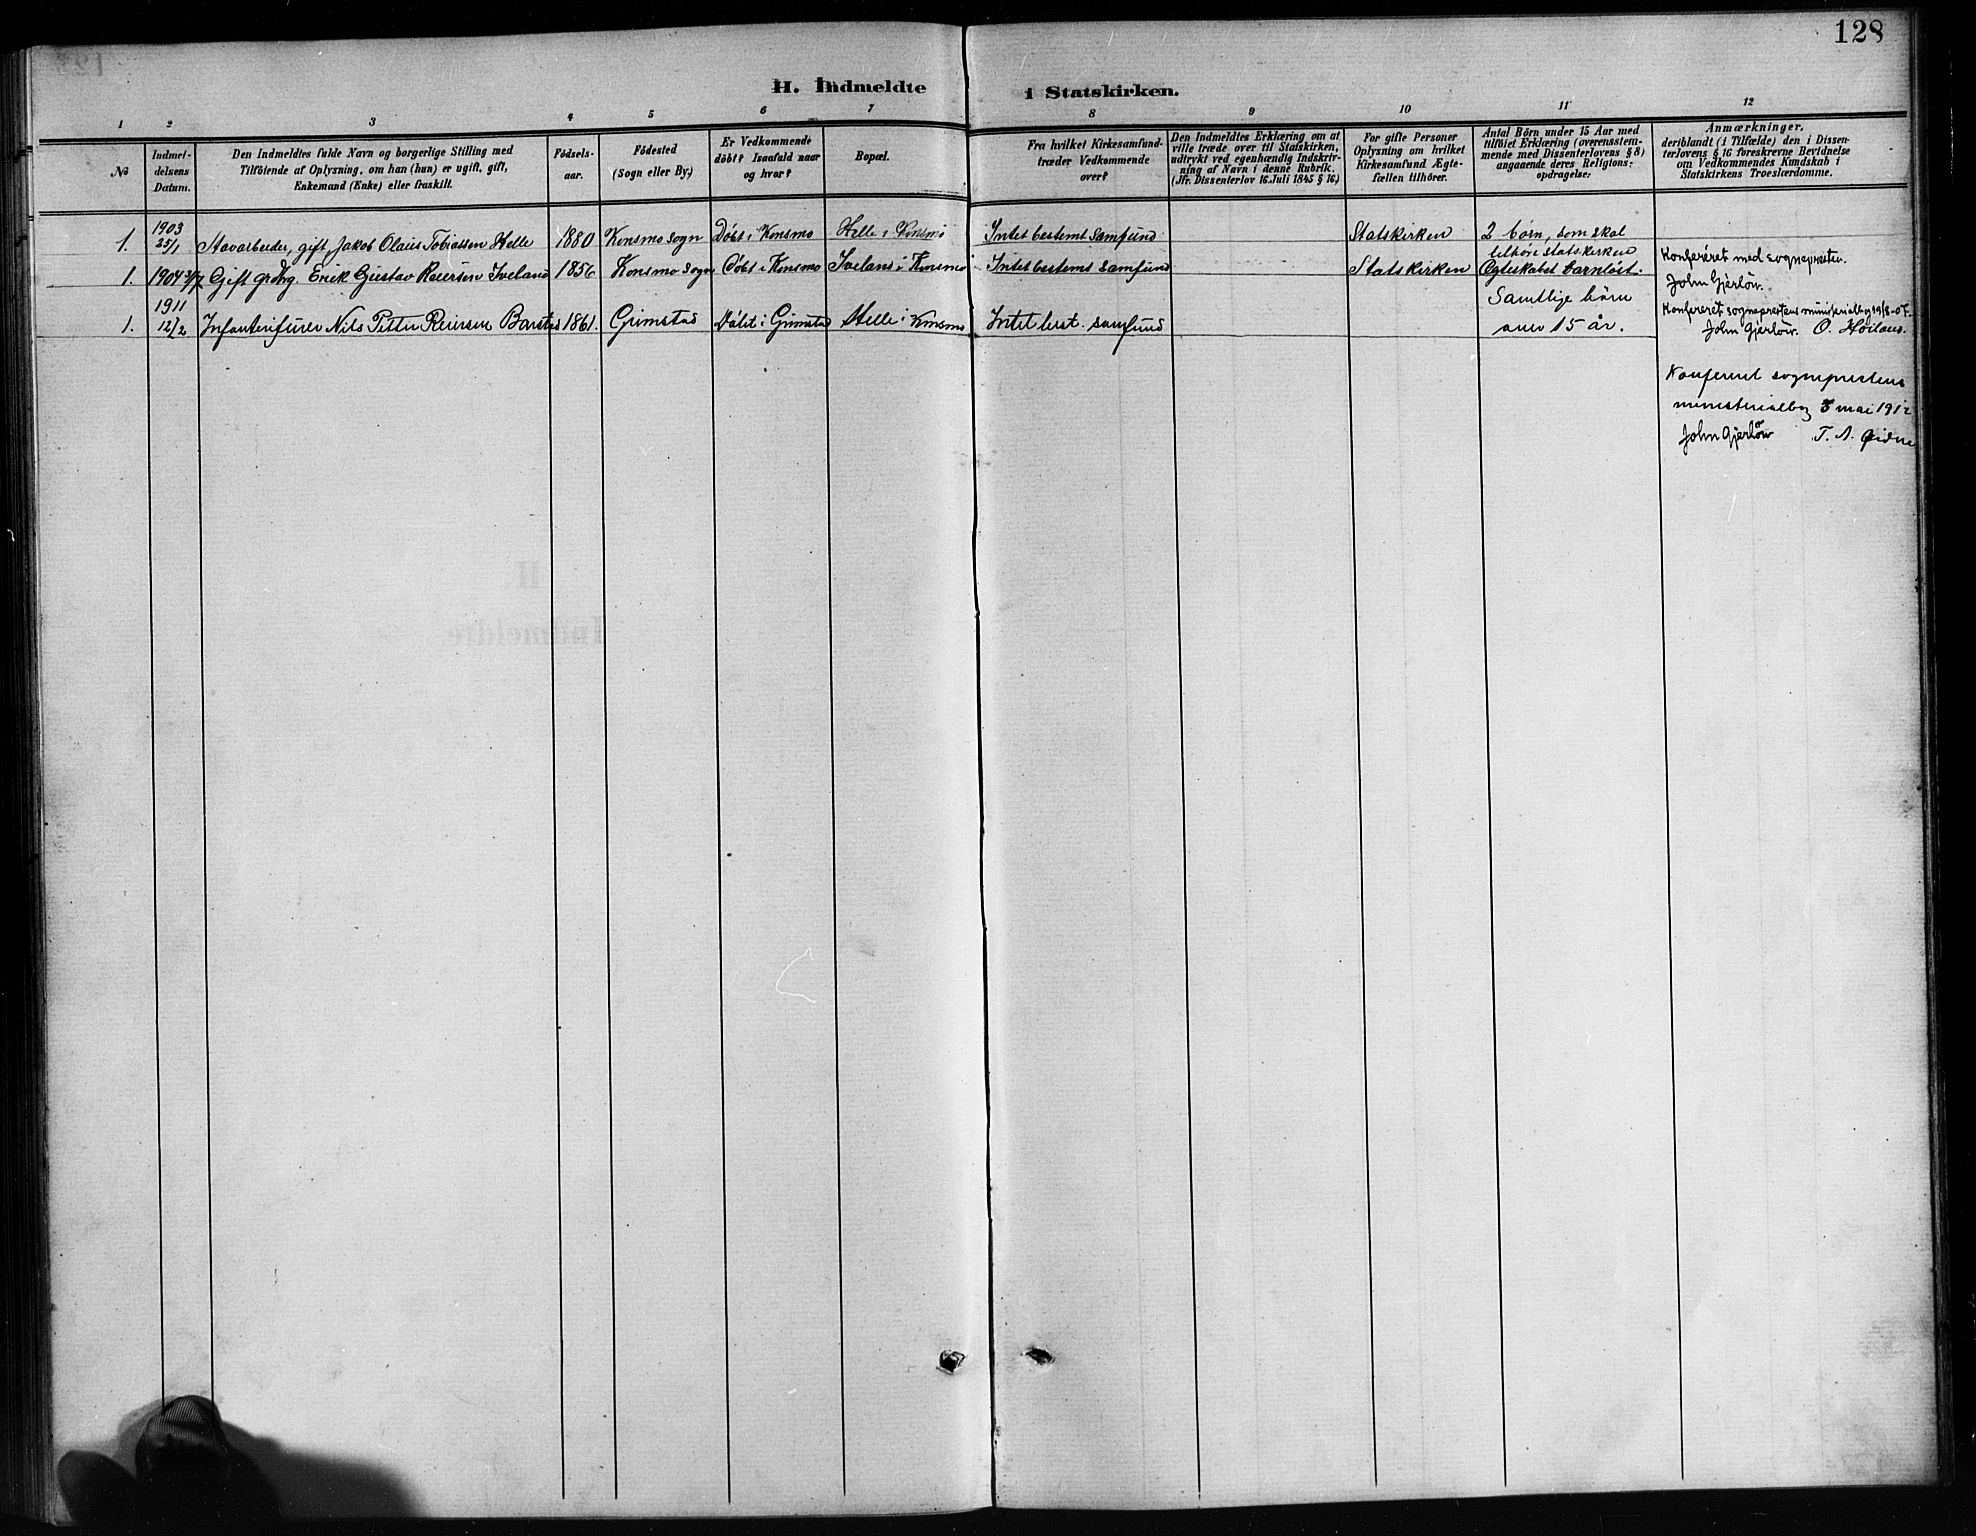 128
H. Indmeldte i Statskirken.
1 2 3 4 5 6 7 8 9 10 11 12
No
Indmel-
delsens
Datum.
Den Indmeldtes fulde Navn og borgerlige Stilling med
Tilföiende af Oplysning, om han (hun) er ugift, gift,
Enkemand (Enke) eller fraskilt.
Födsels-
aar.
Födested
(Sogn eller By.)
Er Vedkommende
döbt? Isaafald naar
og hvor?
Bopæl.
Fra hvilket Kirkesamfund-
træder Vedkommende
over?
Den Indmeldtes Erklæring om at
ville træde over til Statskirken,
udtrykt ved egenhændig Indskriv-
ning af Navn i denne Rubrik.
(Jfr. Dissenterlov 16. Juli 1845 § 16.)
For gifte Personer
Oplysning om hvilket
Kirkesamfund Ægte-
fællen tilhörer.
Antal Börn under 15 Aar med
tilföiet Erklæring (overensstem-
mende med Dissenterlovens § 8)
angaaende deres Religions-
opdragelse:
Anmærkninger,
deriblandt (i Tilfælde) den i Dissen-
terlovens § 16 foreskrevne Bevidnelse
om Vedkommendes Kundskab i
Statskirkens Troeslærdomme.
1903
1. 25/1 Stavarbeider, gift, Jakob Olaus Tobiassen Helle 1880 Konsmo sogn Döbt i Konsmo Helle i Konsmo Intet bestemt samfund Statskirken 2 börn, som skal
tilhöre statskirken
1. 1904 3/7 Gift grdbrg. Erik Gustav Reiersen Iveland 1856 Konsmo sogn Döbt i Konsmo Iveland i Konsmo Intet bestemt samfund Statskirken Ægteskabet barnlöst.
Konfereret med sogneprestens.
John Gjerløw.
1911
1. 12/2 Infanterifurer Nils Petter Reiersen Barstad 1861. Grimstad Döbt i Grimstad Helle i Konsmo Intet best. samfund Samtlige börn
over 15 år.
Konfereret sogneprestens ministerialbog 19/8-07.
John Gjerløw. O. Höiland.
Konfereret sogneprestens
ministerialbog 3 mai 1912
John Gjerløw T. A. Øidne